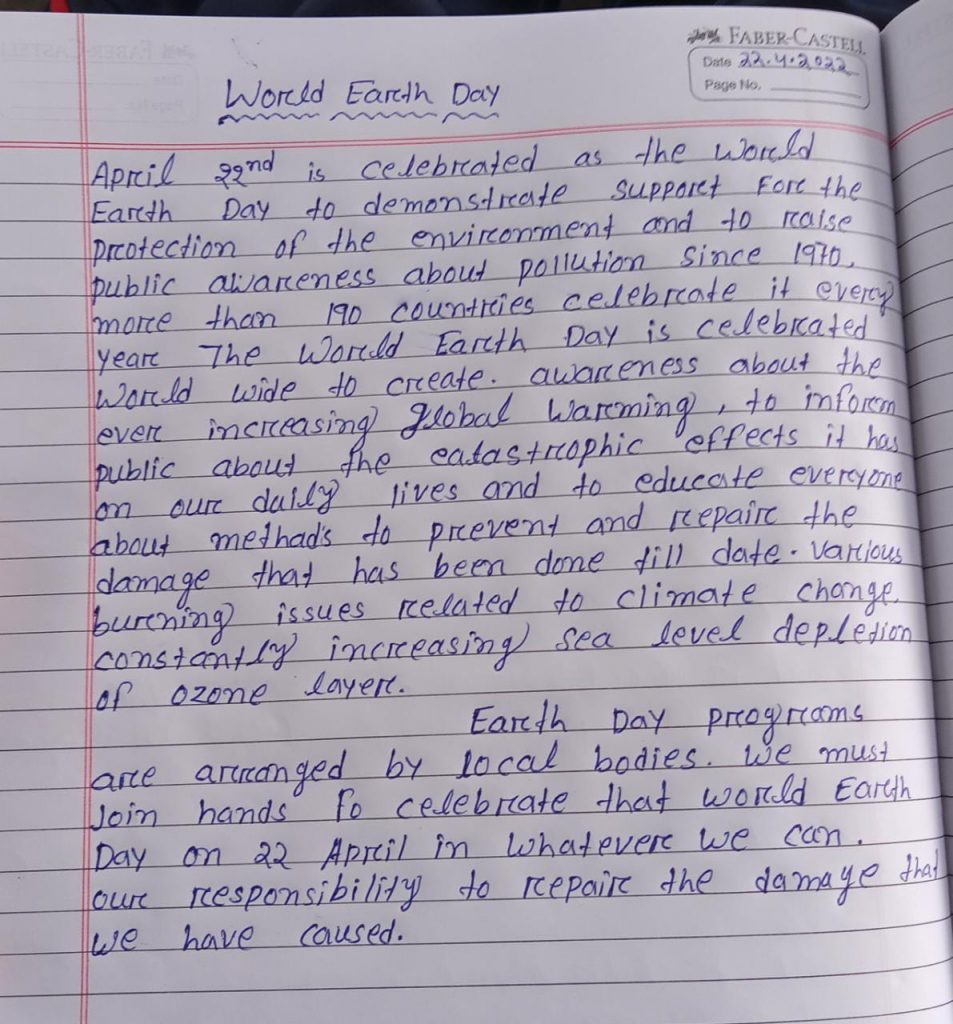 FABER-CASTELL
Date 22.4.2022
Page No.
World Earth Day
April 22nd is celebrated as the World
Earth Day to demonstrate support For the
protection of the environment and to raise
public awareness about pollution since 1970,
more than 190 countries celebrate it every
year The World Earth Day is celebrated
World wide to create. awareness about the
ever increasing global warming, to inform
public about the catastrophic effects it has
on our daily lives and to educate everyone
about methads to prevent and repair the
damage that has been done till date. various
burning issues related to climate change,
constantly increasing sea level depletion
of ozone layer.
Earth Day programs
are arranged by local bodies. We must
Join hands to celebrate that world Earth
Day on 22 April in whatever we can.
our responsibility to repair the damage that
we have caused.